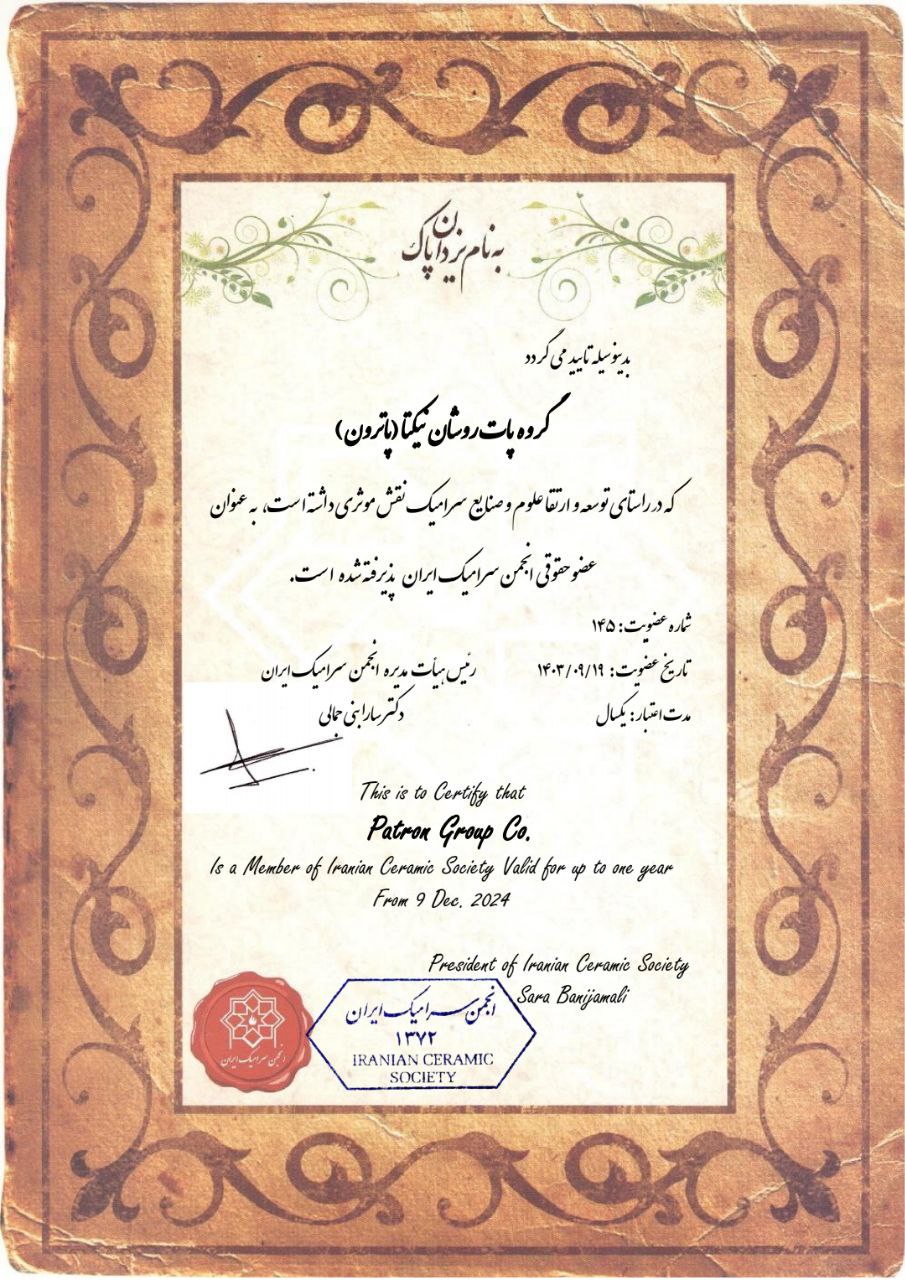 به نام یزدان پاک
بدینوسیله تایید می گردد
گروه پات روشان نیکتا (پاترون)
که در راستای توسعه و ارتقا علوم و صنایع سرامیک نقش موثری داشته است، به عنوان
عضو حقوقی انجمن سرامیک ایران پذیرفته شده است.
شماره عضویت: ۱۴۵
تاریخ عضویت: ۱۴۰۳/۰۹/۱۹
رئیس هیأت مدیره انجمن سرامیک ایران
مدت اعتبار: یکسال
دکتر سارا بنی جمالی
This is to Certify that
Patron Group Co.
Is a Member of Iranian Ceramic Society Valid for up to one year
From 9 Dec. 2024
President of Iranian Ceramic Society
Sara Banijamali
انجمن سرامیک ایران
۱۳۷۲
IRANIAN CERAMIC
SOCIETY
انجمن سرامیک ایران